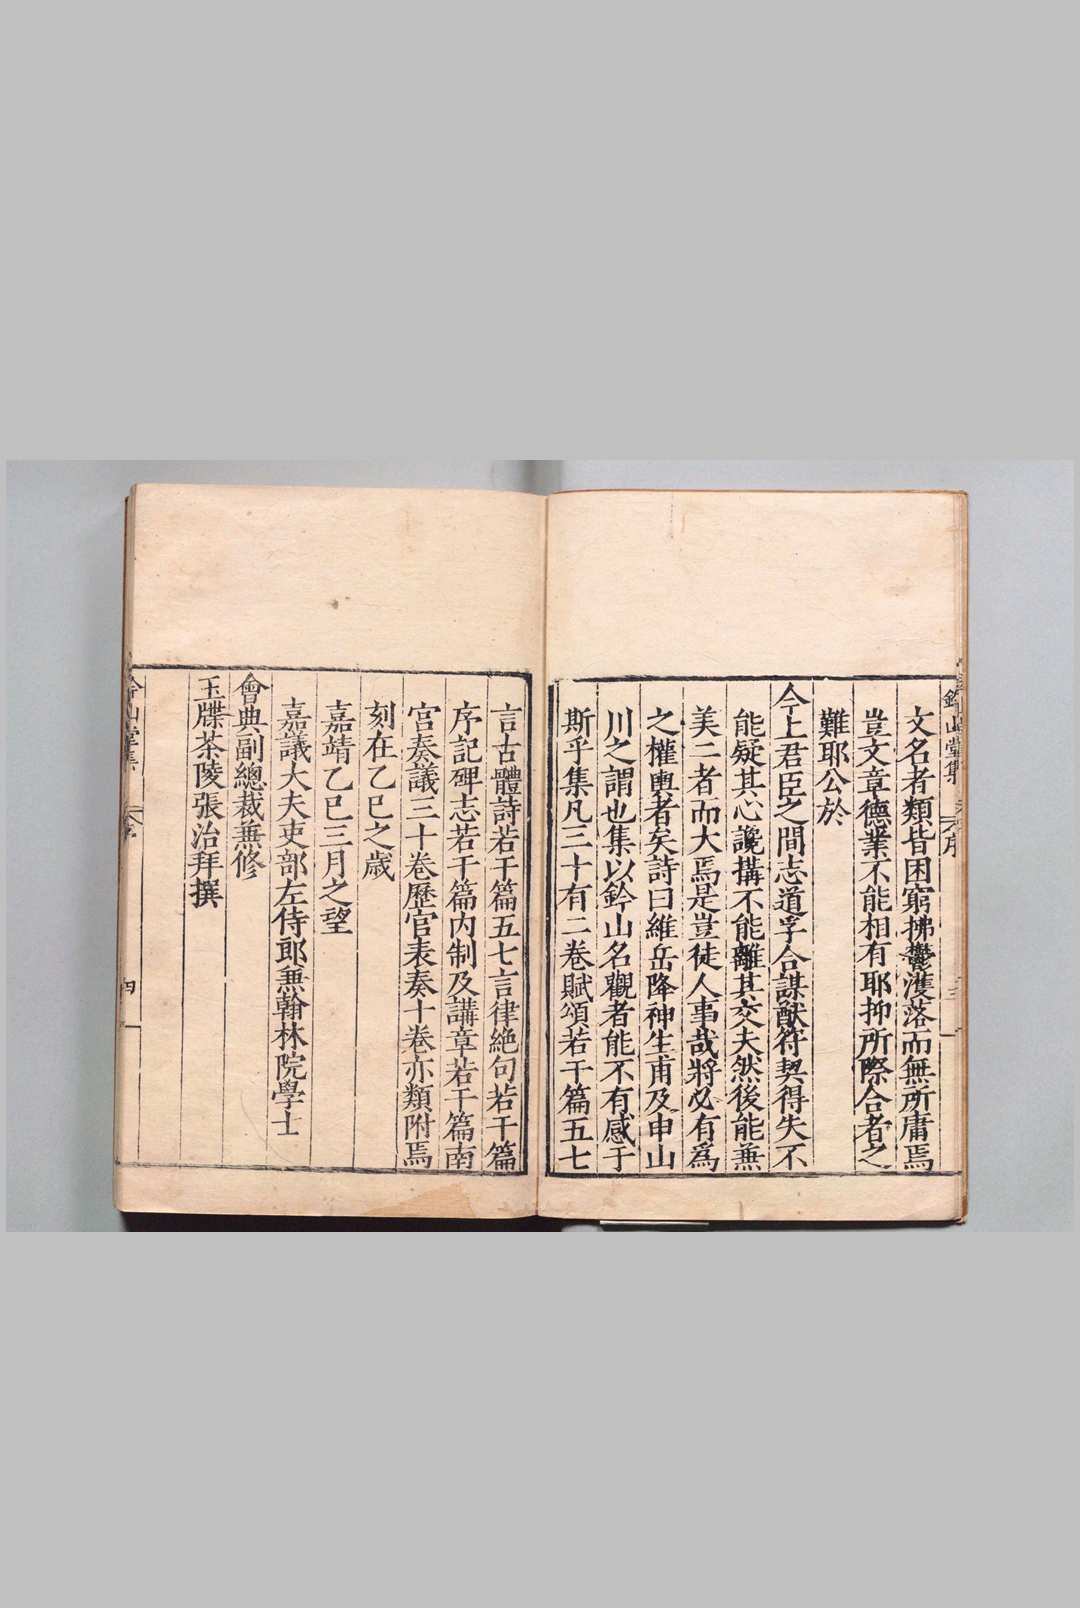 文名者類皆困窮拂鬱濩落而無所庸焉
豈文章德業不能相有耶抑所際合者之
難耶公於
今上君臣之間志道孚合謀猷符契得失不
能疑其心讒搆不能離其交夫然後能兼
美二者而大焉是豈徒人事哉將必有為
之權輿者矣詩曰維岳降神生甫及申山
川之謂也集以鈐山名觀者能不有感于
斯乎集凡三十有二卷賦頌若干篇五七
言古體詩若干篇五七言律絕句若干篇
序記碑志若干篇內制及講章若干篇南
宮奏議三十卷歷官表奏十卷亦類附焉
刻在乙巳之歲
嘉靖乙巳三月之望
嘉議大夫吏部左侍郎兼翰林院學士
會典副總裁兼修
玉牒茶陵張治拜撰
鈐山堂集
序
三
四